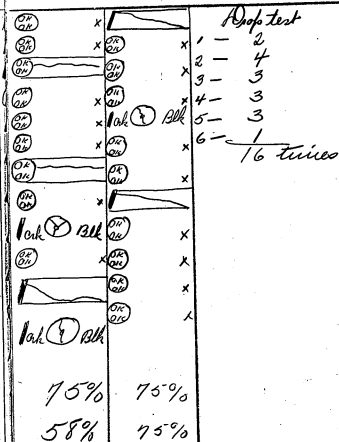 OK OK x
OK OK x
OK OK
OK OK x
OK OK x
OK OK x
OK OK
OK OK x
Blk
OK OK x
Blk
75%
58%
OK OK x
OK OK x
OK OK x
Blk
OK OK x
OK OK x
OK OK x
OK OK x
OK OK x
OK OK x
75%
75%
Drop test
1 — 2
2 — 4
3 — 3
4 — 3
5 — 3
6 — 1
16 times